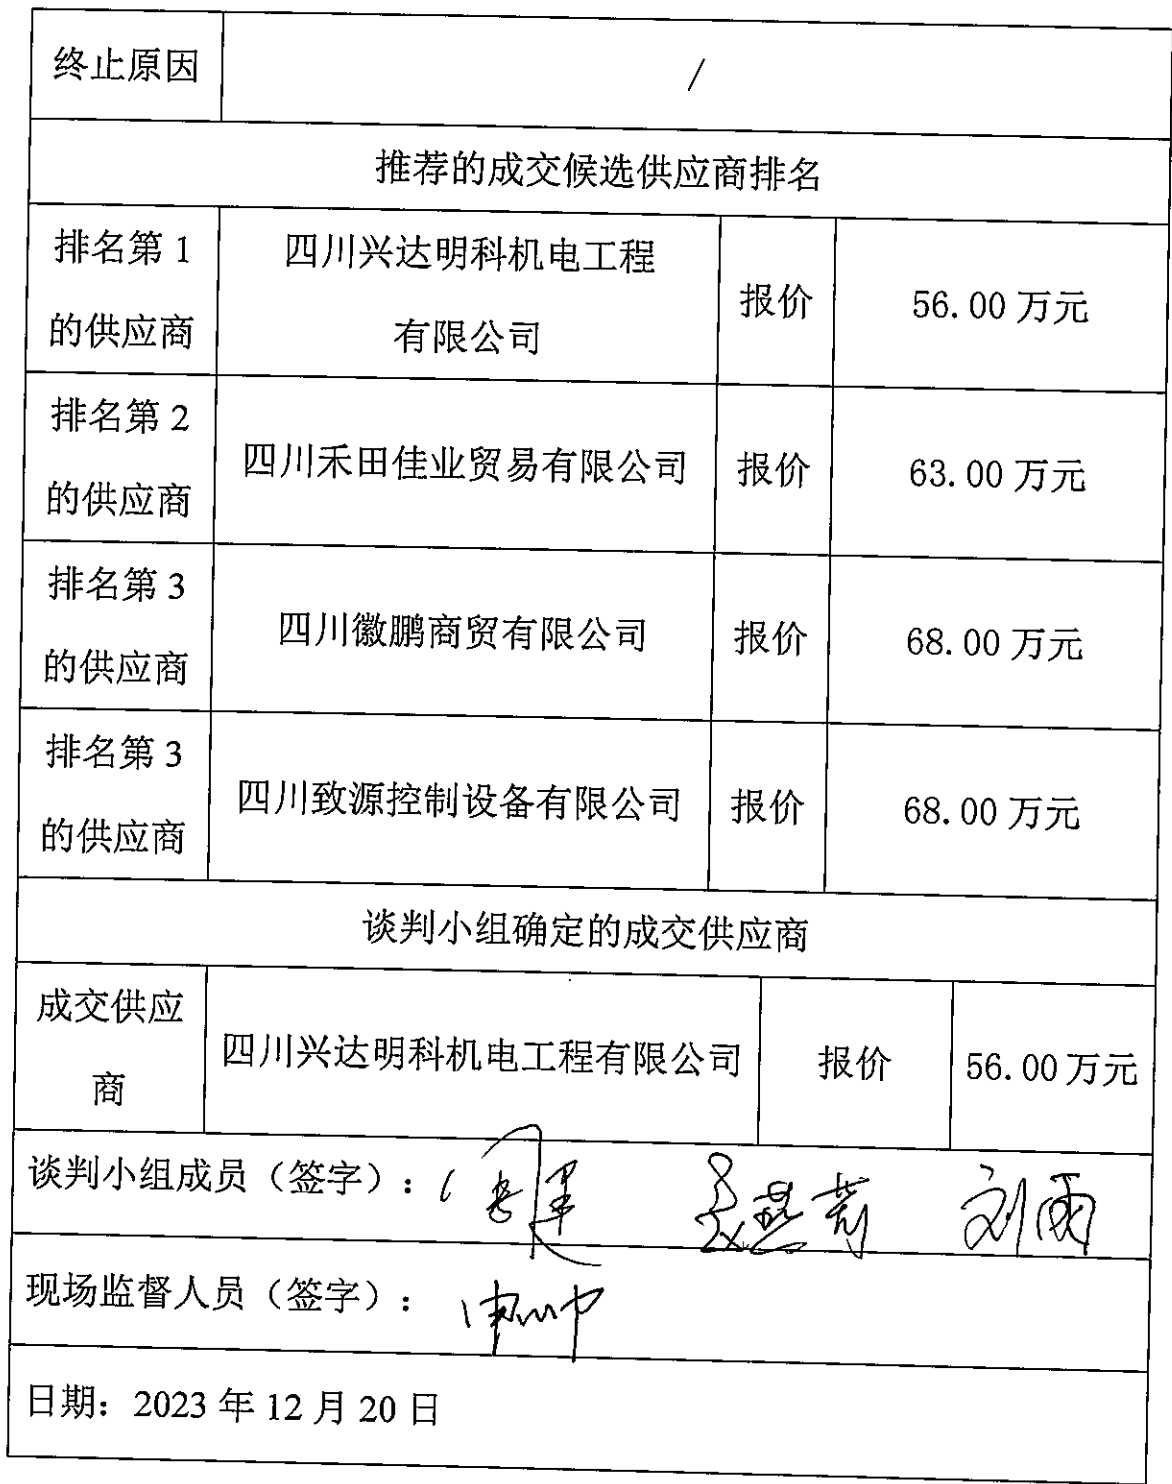 终止原因 /
推荐的成交候选供应商排名
排名第 1
的供应商
四川兴达明科机电工程
有限公司
报价
56.00 万元
排名第 2
的供应商
四川禾田佳业贸易有限公司
报价
63.00 万元
排名第 3
的供应商
四川徽鹏商贸有限公司
报价
68.00 万元
排名第 3
的供应商
四川致源控制设备有限公司
报价
68.00 万元
谈判小组确定的成交供应商
成交供应
商
四川兴达明科机电工程有限公司
报价
56.00万元
谈判小组成员（签字）： 刘雨
现场监督人员（签字）：
日期：2023 年 12 月 20 日